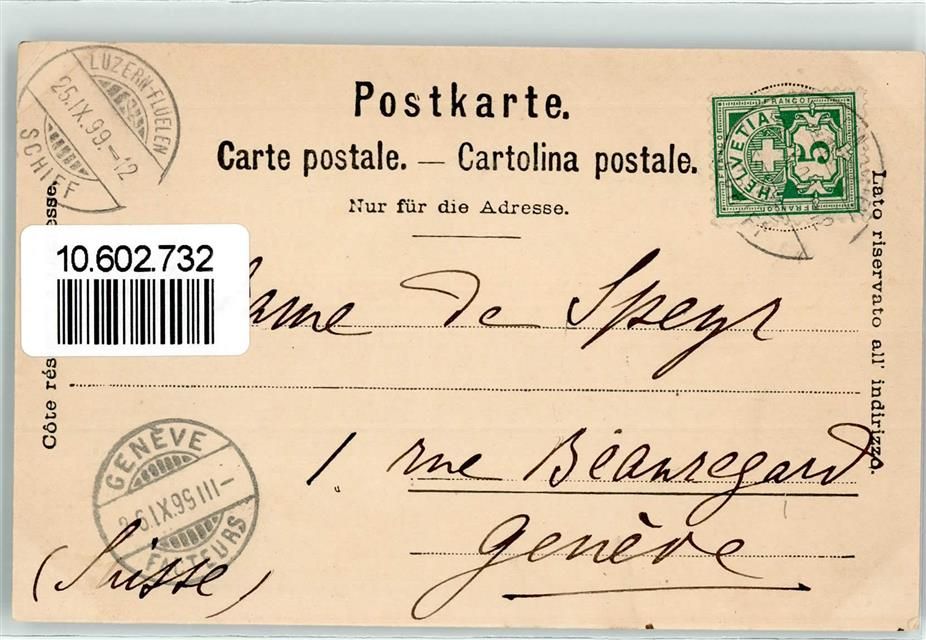 LUZERN-FLUELEN
25.IX.99.-12
SCHIFF
Postkarte.
Carte postale. — Cartolina postale.
Nur für die Adresse.
FRANCO
HELVETIA
5
FRANCO
Lato riservato all' indirizzo.
Côte rés
esse.
10.602.732
ame de Speyr
1 rue Béauregard
Genève
(Suisse)
GENÈVE
26.IX.99 III-
FACTEURS